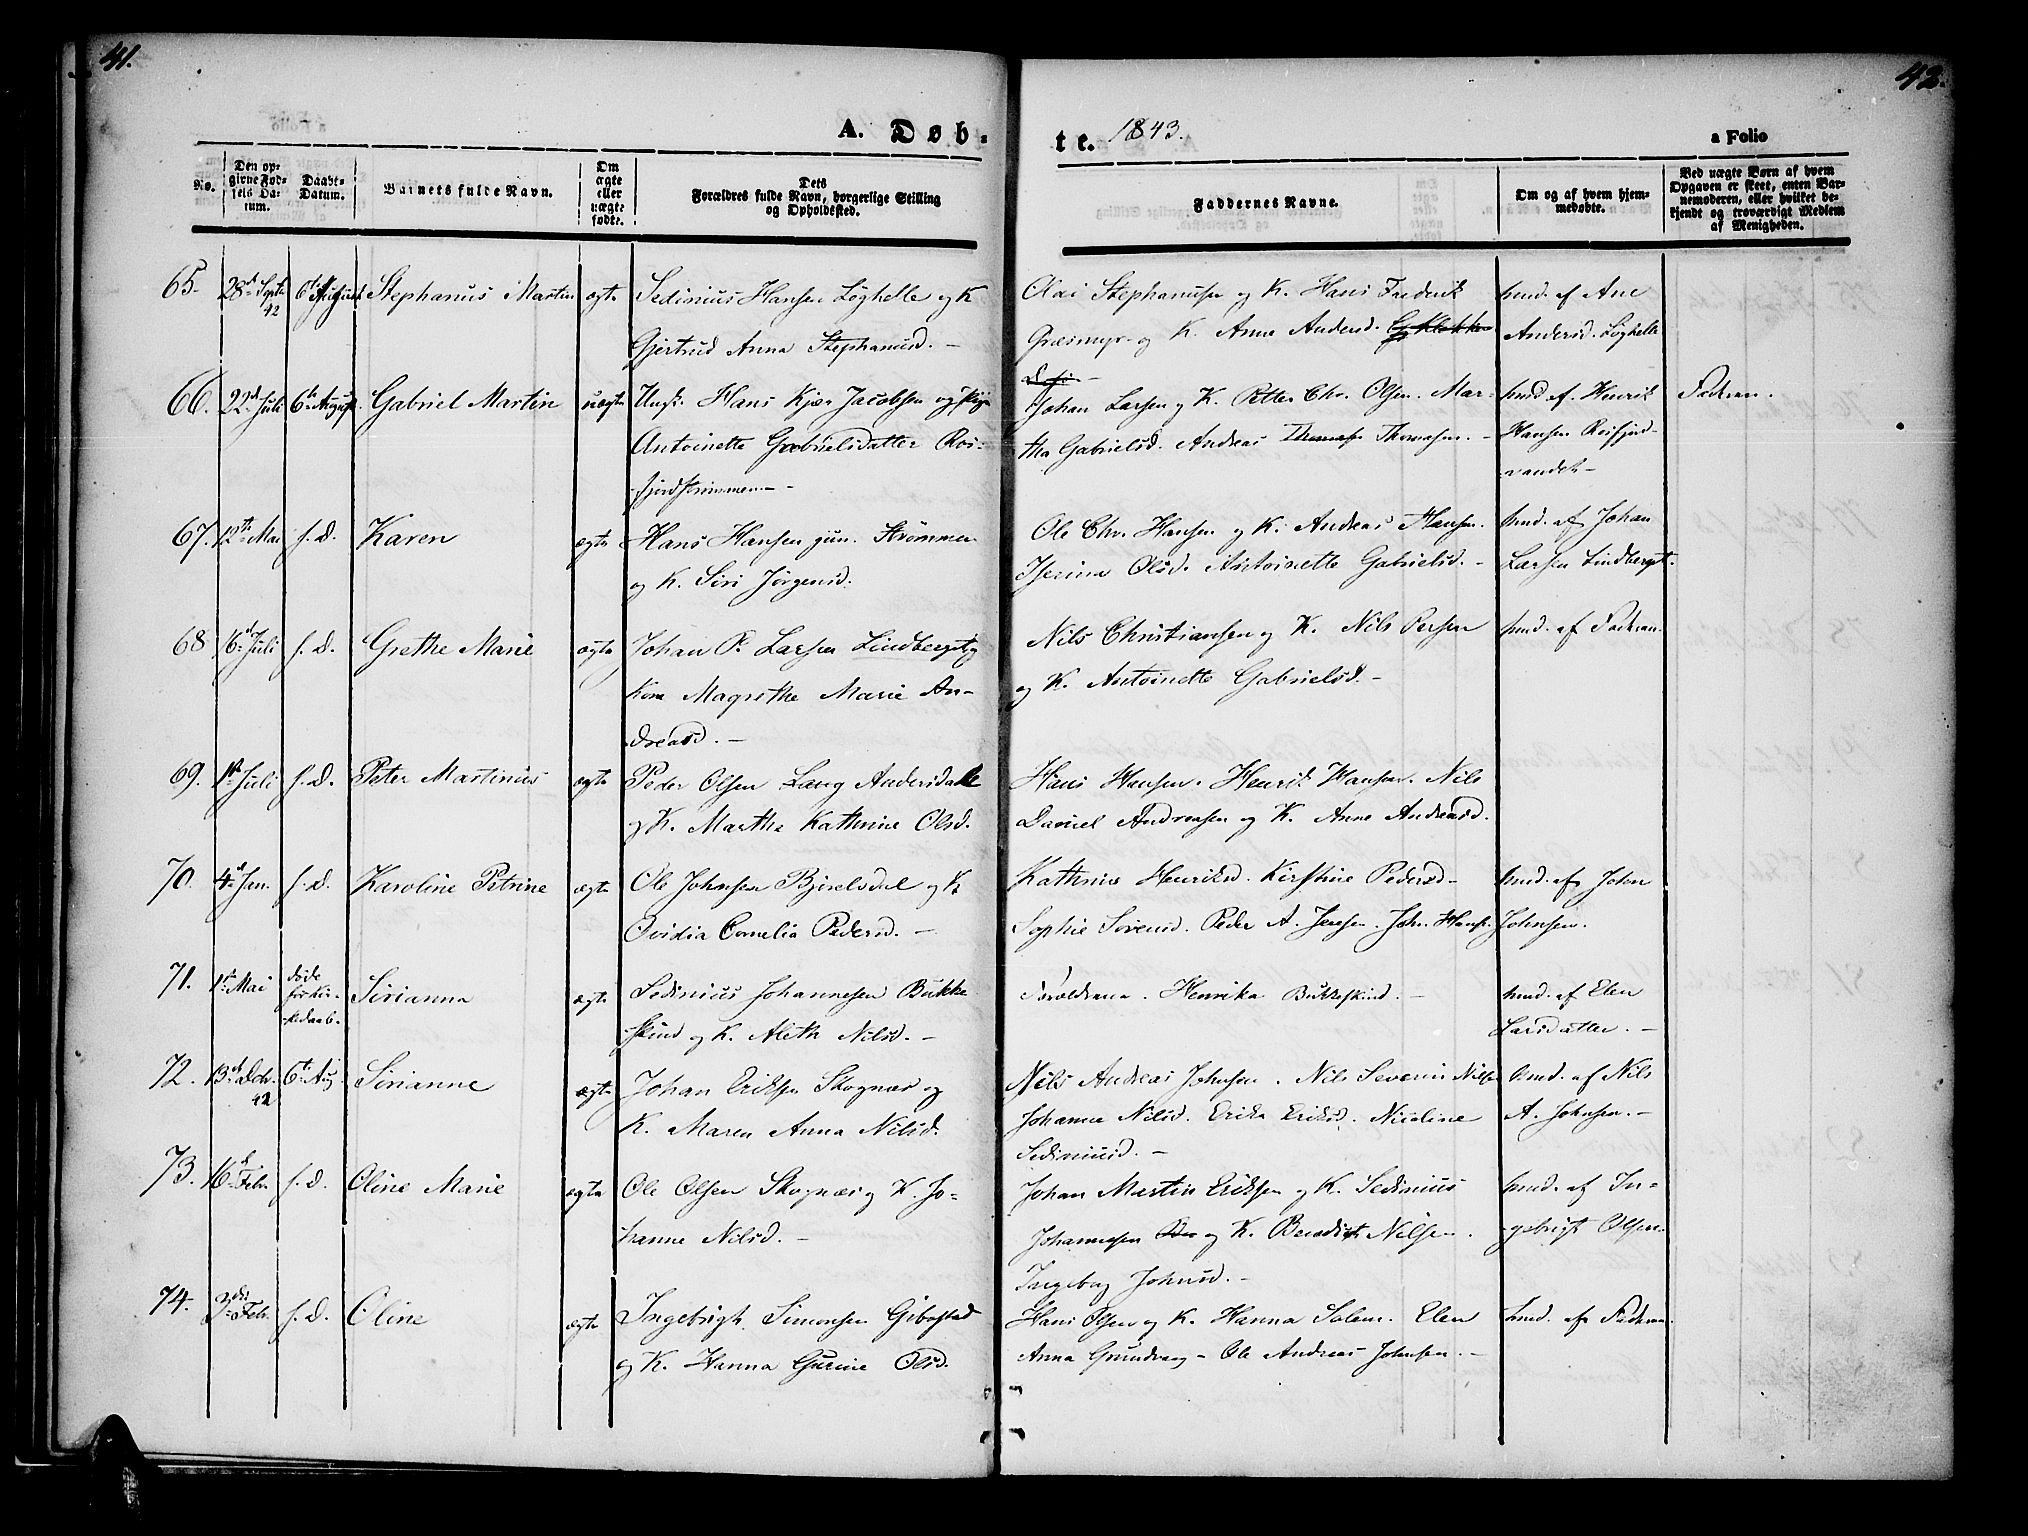 41.
42.
A. Døb-
te. 1843.
a Folio
No.
Den op-
givne Fød-
sels Da-
tum.
Daabs-
Datum.
Barnets fulde Navn.
Om
ægte
eller
uægte
fødte.
Dets
Forældres fulde Navn, borgerlige Stilling
og Opholdssted.
Faddernes Navne.
Om og af hvem hjem-
medøbte.
Ved uægte Børn af hvem
Opgaven er skeet, enten Bar-
nemoderen, eller hvilket be-
kjendt og troværdigt Medlem
af Menigheden.
65. 28d Septr 42 6te August Stephanus Martin ægte Sedinius Hansen Løghelle og K.
Gjertrud Anna Stephanusd. –
Olai Stephanusen og K. Hans Frederik
Græsmyr og K. Anne Andersd.
hmd. af Ane
Andersd. Løghelle
66. 22d Juli 6te August Gabriel Martin uægte Ungk. Hans Kjær Jacobsen og Pige
Antoinette Gabrielsdatter Ros-
fjordstrømmen –
Johan Larsen og K. Petter Chr. Olsen. Mar-
tha Gabrielsd. Andreas Thomasen. –
hmd. af Henrik
Hansen Rosfjord-
vandet –
Fadren.
67. 12te Mai s. d. Karen ægte Hans Hansen jun. Strømmen
og K. Siri Jørgensd.
Ole Chr. Hansen og K. Andreas Hansen.
Iserina Olsd. Antoinette Gabrielsd. –
hmd. af Johan
Larsen Lindberget.
68 16d Juli s. d. Grethe Marie ægte Johan P. Larsen Lindberget og
Kone Magrethe Marie An-
dreasd. –
Nils Christiansen og K. Nils Persen
og K. Antoinette Gabrielsd. –
hmd. af Fadren.
69. 1st Juli s. d. Peter Martinus ægte Peder Olsen Lang Andersdale
og K. Martha Kathrine Olsd.
Hans Hansen. Henrik Hansen. Nils
Daniel Andreasen og K. Anne Andreasd.
70. 4d Jan. s. d. Karoline Petrine ægte Ole Johnsen Bjorelsdal og K.
Ovidia Cornelia Pedersd. –
Kathrine Henriksd. Kirstine Pedersd –
Sophie Sørensd. Peder A. Jensen. Joh. Hansen.
hmd. af John
Johnsen.
71. 1st Mai døde
før Kir-
kedaab. Sirianna ægte Sedinius Johannesen Bukke
skind og K. Aleth Nilsd. –
Forældrene. Henrika Bukkeskind. –
hmd. af Elen
Larsdatter. –
72. 13d Octr. 42 6te Aug. Sirianne ægte Johan Eriksen Skognæs og
K. Maren Anna Nilsd.
Nils Andreas Johnsen. Nils Severin Nilsen
Johanna Nilsd. Erika Eriksd. Nicoline
Sedeniusd. –
hmd. af Nils
A. Johnsen. –
73. 16d Febr. s. d. Oline Marie ægte Ole Olsen Skognæs og K. Jo-
hanne Nilsd. –
Johan Martin Eriksen og K. Sedinius
Johannesen og K. Bendikt Nilsen.
Ingeborg Johnsd. –
hmd. af In-
gebrigt Olsen.
74. 3die Febr. s. d. Oline ægte Ingebrigt Simonsen Gibostad
og K. Hanna Gurine Olsd.
Hans Olsen og K. Hanna Salem. Elen
Anna Grundvag – Ole Andreas Johnsen. –
hmd. af Fadren.